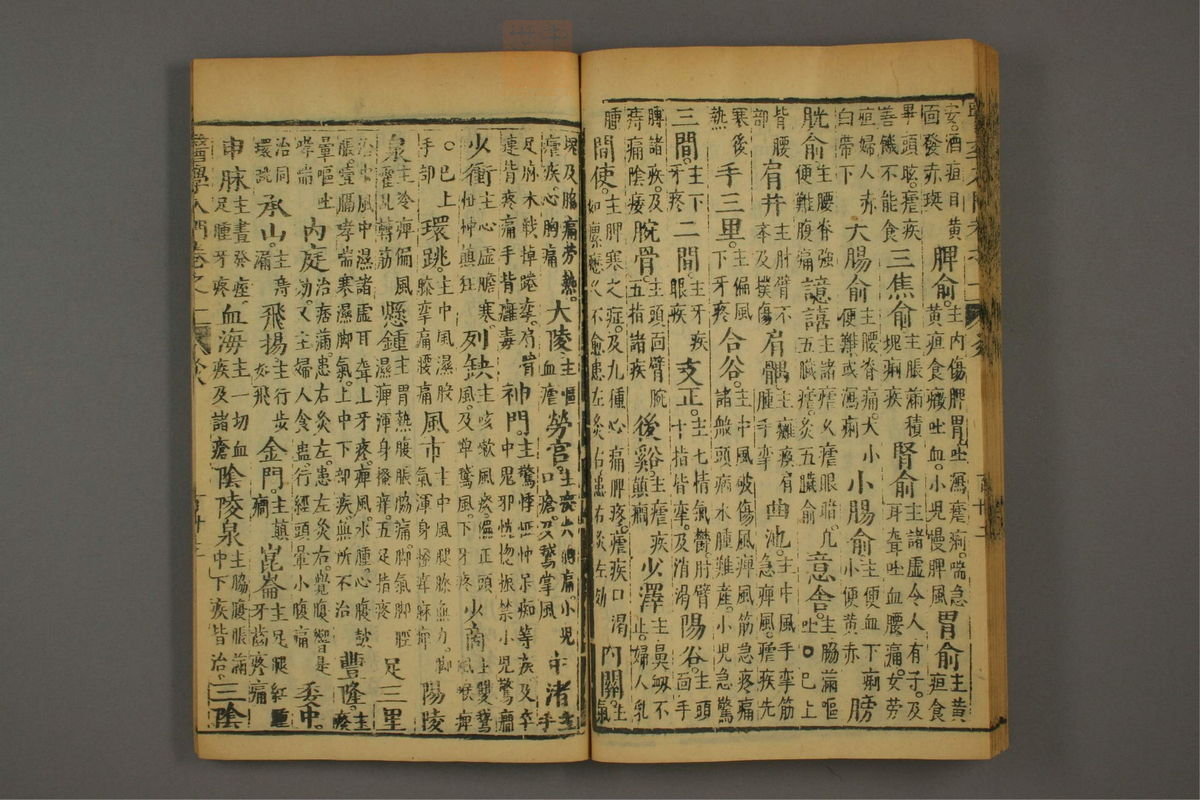 安。酒疸目黃面發赤斑脾俞。主內傷脾胃吐瀉瘧痢。喘急黃疸食癥吐血。小兒慢脾風胃俞主黃疸食
畢。頭眩。瘧疾善饑不能食三焦俞主脹滿積塊痢疾腎俞主諸虛令人有子。及耳聾吐血腰痛女勞
疸婦人赤白帶下大腸俞主腰脊痛。大小便難或瀉痢小腸俞主便血下痢小便黃赤膀
胱俞主腰脊強便難腹痛譩譆主諸瘧久瘧眼暗。凡五臟瘧灸五臟俞意舍。主脇滿嘔吐○巳上
背腰部肩井主肘臂不舉及撲傷肩髃主癱瘓肩腫手攣曲池。主中風手攣筋急痺風。瘧疾先
寒後熱手三里。主偏風下牙疼合谷。主中風破傷風痺風筋急疼痛諸般頭病水腫難產。小兒急驚
三間。主下牙疼二間。主牙疾眼疾支正。主七情氣鬱。肘臂十指皆攣。及消渴陽谷。主頭面手
膊諸疾。及痔痛陰痿腕骨。主頭面臂腕五指諸疾後谿。主瘧疾癲癇少澤主鼻衄不止。婦人乳
腫間使。主脾寒之症。及九種心痛脾疼。瘧疾口渴如瘰癧久不愈患左灸右患右灸左効內關。主氣
塊及脇痛勞熱。瘧疾。心胸痛大陵主嘔血瘧勞宮。主痰火胸痛小兒口瘡。及鵞掌風中渚主手
足麻木戰掉踡攣。肩臂連背疼痛手背癰毒神門。主驚悸怔忡呆痴等疾及卒中鬼邪恍惚振禁小兒驚癇
少衝主心虛膽寒。怔忡癲狂列缺主咳嗽風痰。偏正頭風。及單鵞風。下牙疼少商主雙鵞風喉痺
。巳上手部環跳。主中風濕股膝攣痛腰痛風市主中風腿膝無力。脚氣渾身瘙痒麻痺陽陵
泉主冷痺偏風霍亂轉筋懸鍾主胃熱腹脹脇痛。脚氣脚脛濕痺渾身搔痒五足指疼足三里
治中風中濕諸虛耳聾上牙疼。痺風水腫。心腹鼓脹噎膈哮喘寒濕脚氣。上中下部疾無所不治豐隆。主痰
暈嘔吐哮喘內庭治痞滿。患右灸左。患左灸右。覺腹響是効。又主婦人食蠱行經頭暈小腹痛委中。
治同環跳承山。主痔漏飛揚主行步如飛金門。主癲癇崑崙主足腿紅腫牙齒疼痛
申脉主晝發痙。足腫牙疼血海主一切血疾及諸瘡陰陵泉主脇腹脹滿中下疾皆治。三陰
醫學入門卷之一